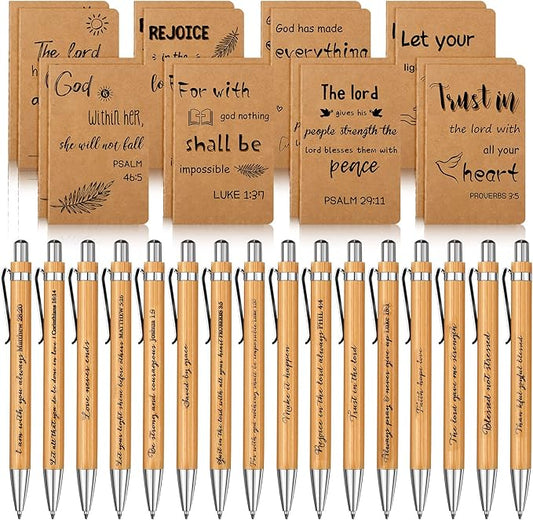 The lord
REJOICE
in the
God has made
everything
Let your
God
within her,
she will not fall
PSALM
46:5
For with
god nothing
shall be
impossible
LUKE 1:37
The lord
gives his
people strength the
lord blesses them with
peace
PSALM 29:11
Trust in
the lord with
all your
heart
PROVERBS 3:5
I am with you always Matthew 28:20
Let all that you do be done in love 1 Corinthians 16:14
Love never ends
Let your light shine before others MATTHEW 5:16
Be strong and courageous Joshua 1:9
Saved by grace
Trust in the lord with all your heart PROVERBS 3:5
For with god nothing shall be impossible Luke 1:37
Make it happen
Rejoice in the lord always PHIL 4:4
Trust in the lord
Always pray & never give up Luke 18:1
Faith hope love
The lord gave me strength
Blessed not stressed
Thankful joyful blessed